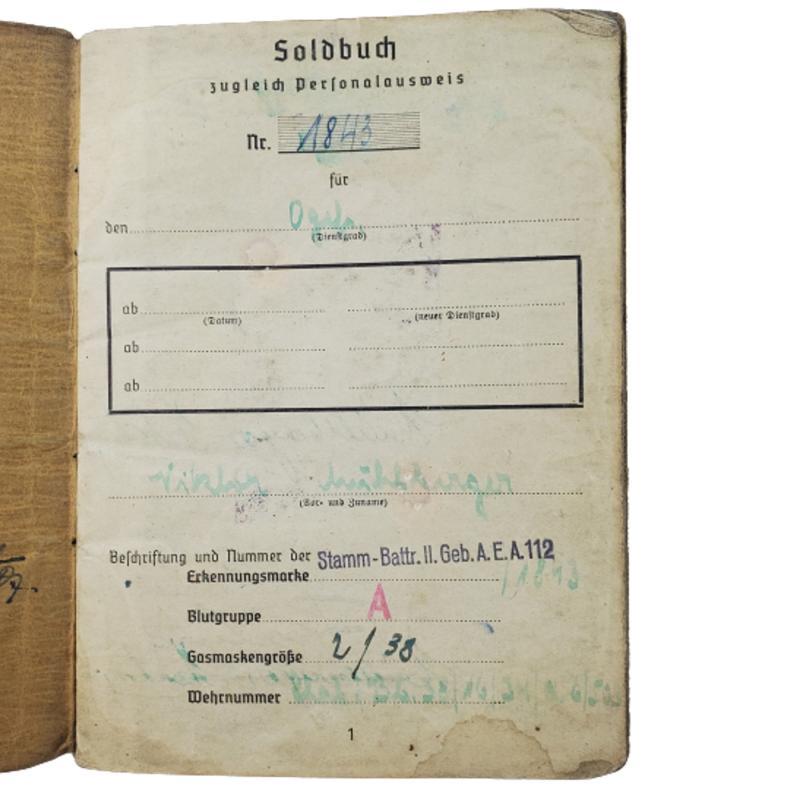 Soldbuch
zugleich Personalausweis
Nr. 1843
für
den
(Dienstgrad)
ab
(Datum) (neuer Dienstgrad)
ab
ab
(Vor- und Zuname)
Beschriftung und Nummer der Stamm-Battr. II. Geb. A. E. A. 112
Erkennungsmarke
Blutgruppe A
Gasmaskengröße 2/38
Wehrnummer
1